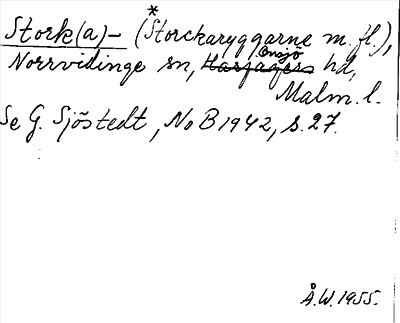 Stork(a)- (*Storckaryggarne m. fl.),
Norrvidinge sn, ~~Harjagers~~ Onsjö hd,
Malm. l.
Se G. Sjöstedt, NoB 1942, s. 27.
Å.W. 1955.